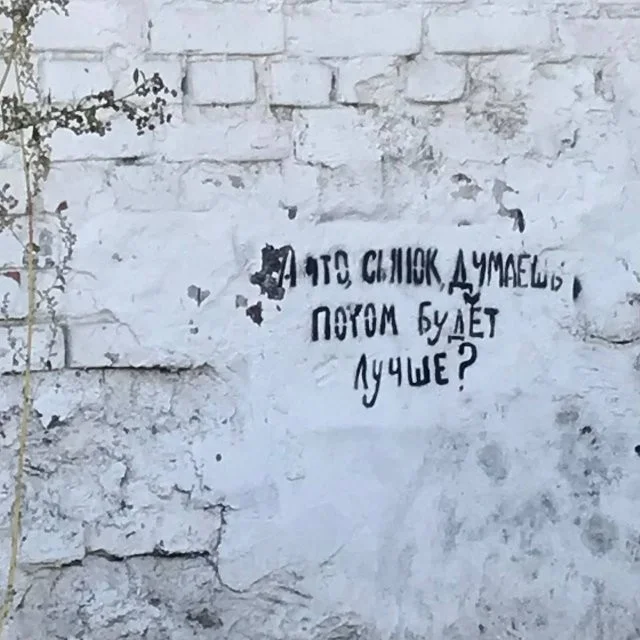 А что, сынок, думаешь,
потом будет
лучше?